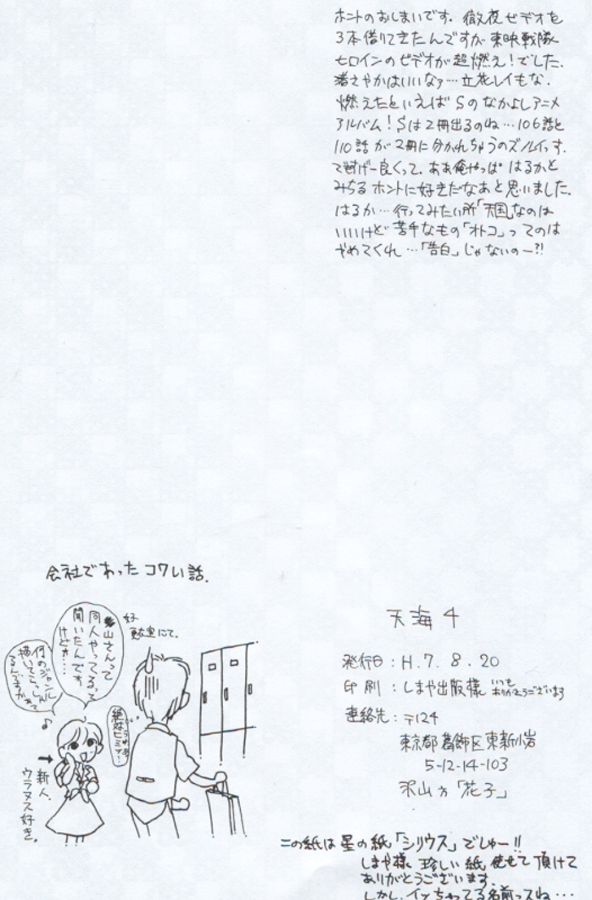 ホントのおしまいです。徹夜ビデオを
3本借りてきたんですが東映戦隊
ヒロインのビデオが超燃え!でした。
さやかはいいなァ…立花レイもな。
燃えたといえばSのなかよしアニメ
アルバム!Sは2冊出るのね…106話と
110話が2冊に分かれちゃうのズルイっす。
すげー良くって。ああ俺やっぱはるかと
みちるホントに好きだなあと思いました。
はるか…行ってみたい所「天国」なのは
いいけど苦手なもの「オトコ」ってのは
やめてくれ…「告白」じゃないのー?!
会社であったコワい話。
更衣室にて。
山さんって
同人やってるって
聞いたんです
けどォ…
何のジャンル
描いてらっしゃ
るんですかぁ?
♪
絶対ヒミツ…
新人。
ウラヌス好き。
天海4
発行日:H.7.8.20
印刷:しまや出版様 いつも
ありがとうございます
連絡先:〒124
東京都葛飾区東新小岩
5-12-14-103
沢山方「花子」
この紙は星の紙「シリウス」でしゅー!!
しまや様 珍しい紙 使せて頂けて
ありがとうございます。
しかし、イッちゃってる名前っスね…